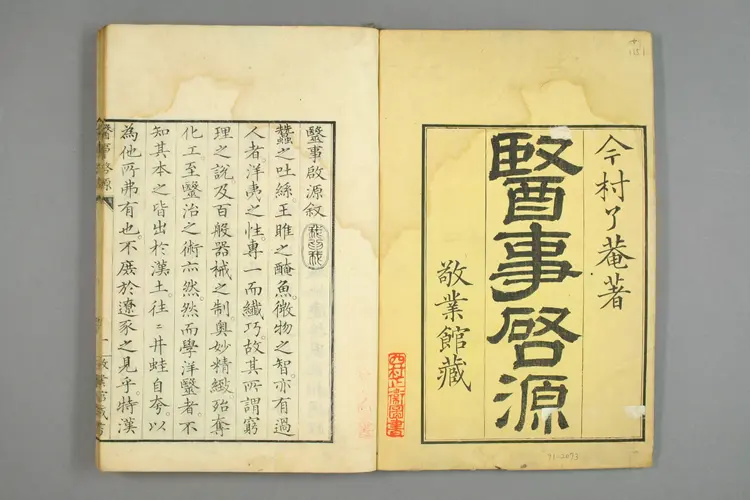 今村了菴著
醫事啓源
敬業館藏
毉事啟源叙
蠶之吐絲。王雎之醃魚。微物之智。亦有過
人者。洋夷之性。專一而纖巧。故其所謂窮
理之說。及百般器械之制。奧妙精緻。殆奪
化工。至毉治之術亦然。然而學洋毉者。不
知其本之皆出於漢土。往〻井蛙自夸。以
為他所弗有也。不庶於遼豕之見乎。特漢